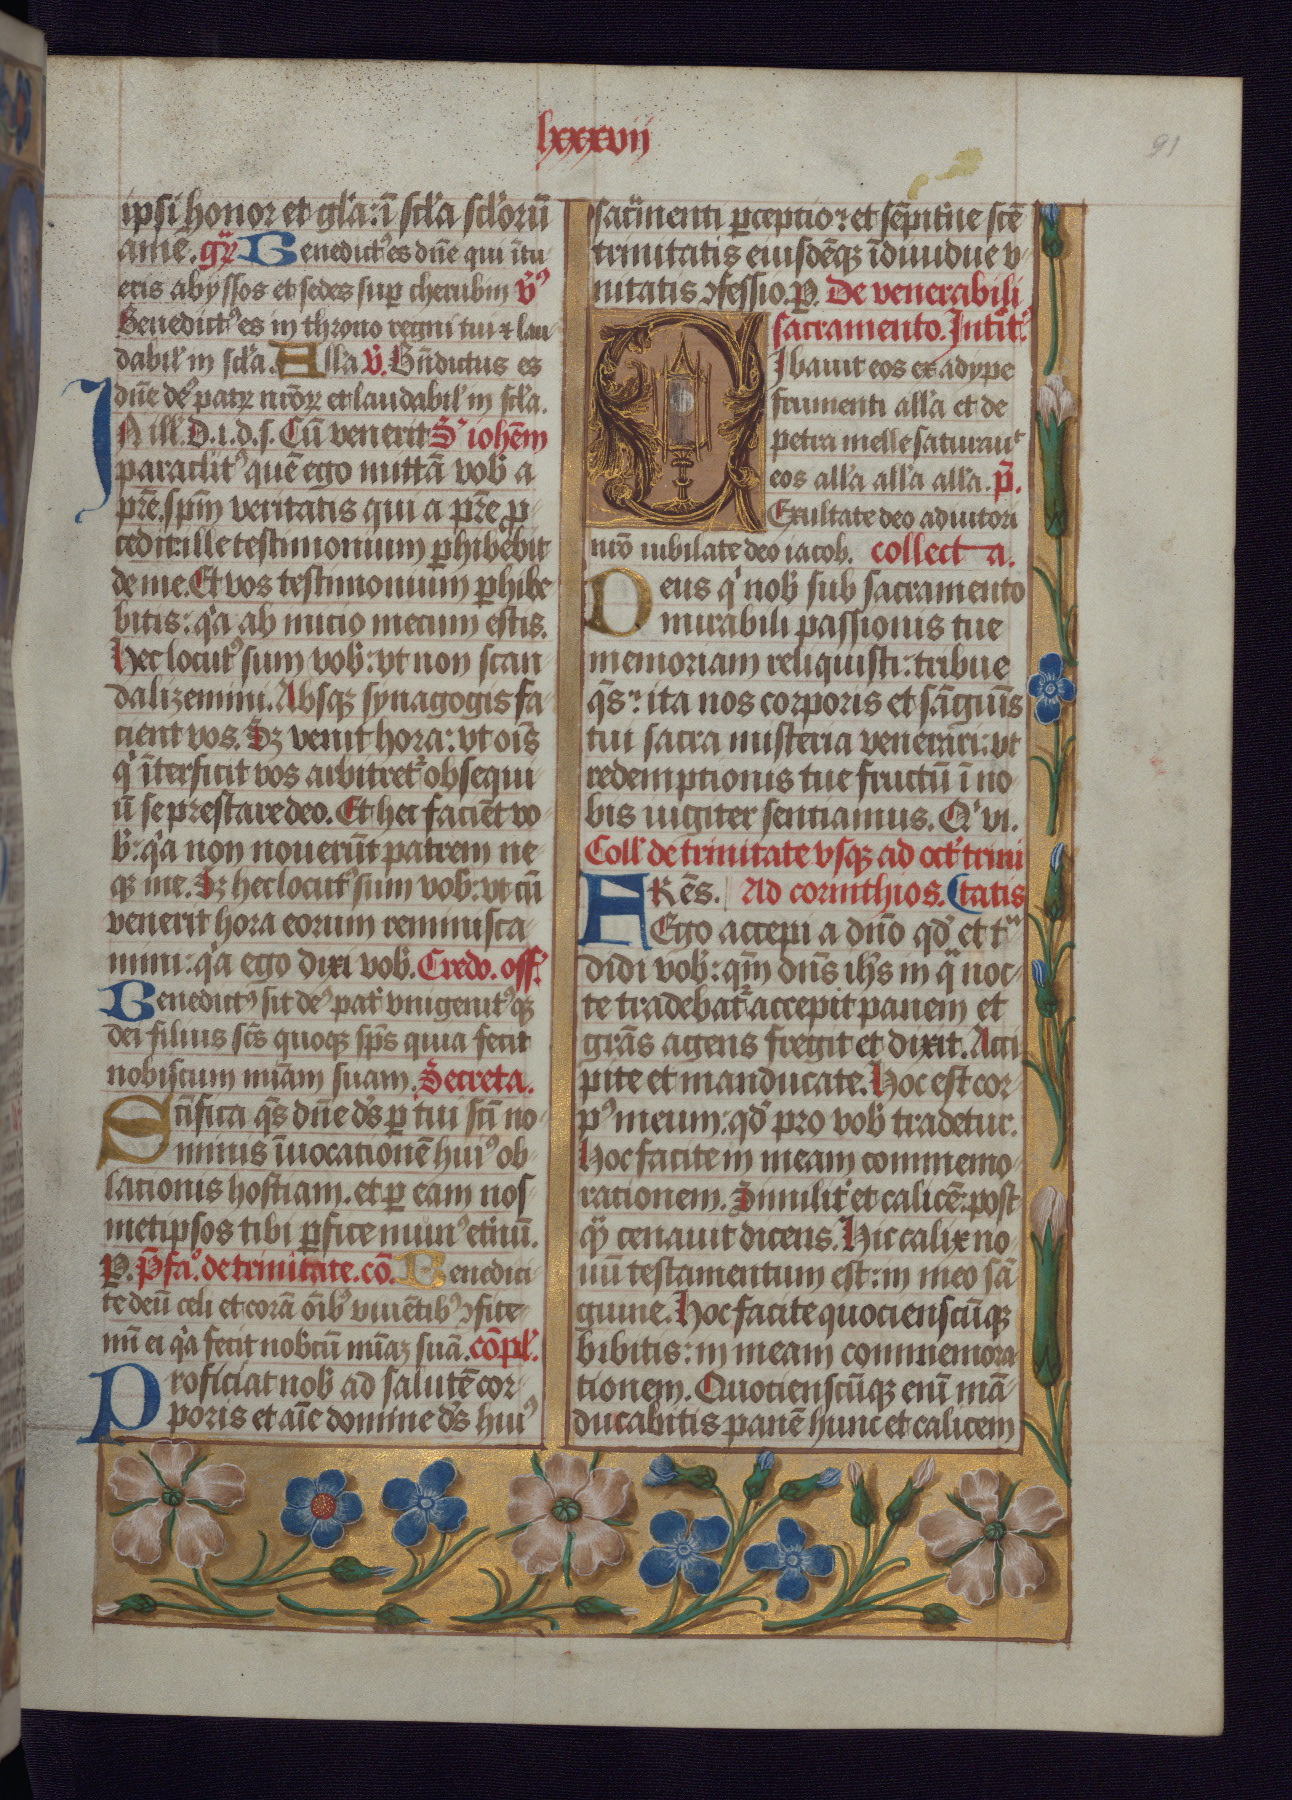 lxxxvii
91
ipsi honor et gl'a: ī scl'a scl'orū
amē. gr̄ Benedict⁹ es dn̄e qui ītu-
eris abyssos et sedes sup cherubin v̄⁹
Benedict⁹ es in throno regni tui ⁊ lau-
dabil' in scl'a. All'a v̄. Bn̄dictus es
dn̄e de⁹ patrꝫ nr̄oꝝ et laudabil' in scl'a.
IN ill'. D. i. d. s. Cū venerit S' iohēm
paraclit⁹ quē ego mittā vob' a
pr̄e. sp̄m veritatis qui a pr̄e p̱-
cedit: ille testimonium ꝑhibebit
de me. Et vos testimonium ꝑhibe
bitis: q'a ab inicio mecum estis.
Hec locut⁹ sum vob': vt non scan-
dalizemini. Absqꝫ synagogis fa-
cient vos. Sꝫ venit hora: vt ois̄
q' īterficit vos arbitret' obsequi-
ū se prestare deo. Et hec faciēt vo-
b': q'a non nouerūt patrem ne-
qꝫ me. Sꝫ hec locut⁹ sum vob': vt cū
venerit hora eorum reminisca-
mini: q'a ego dixi vob'. Credo. off̄.
Benedict⁹ sit de⁹ pat' vnigenit⁹qꝫ
dei filius sc̄s quoqꝫ sp̄s quia fecit
nobiscum mīam suam. Secreta.
Scīfica q̄s dn̄e d's ꝑ tui sc̄i no-
minis īuocationē hui⁹ ob-
lationis hostiam. et ꝑ eam nos-
metipsos tibi ꝑfice mun⁹ et'nū.
P. P̄fa'. de trinitate. cō. Benedici-
te deū celi et corā oīb⁹ viuētib⁹ ꝯfite-
mī ei q'a fecit nob'cū mīaꝫ suā. cōpl'.
Proficiat nob' ad salutē cor-
poris et aīe domine d's hui⁹
sac̄menti ꝑceptio: et sēpit'ne scē
trinitatis eiusdēqꝫ īdiuidue v-
nitatis ꝯfessio. P. De venerabili
sacramento. Intit'.
Cibauit eos ex adype
frumenti all'a et de
petra melle saturauit
eos all'a all'a all'a. p̄.
Exultate deo adiutori
nr̄o iubilate deo iacob. collecta.
Deus q' nob' sub sacramento
mirabili passionis tue
memoriam reliquisti: tribue
q̄s: ita nos corporis et sāguīs
tui sacra misteria venerari: vt
redemptionis tue fructū ī no-
bis iugiter sentiamus. Q' vi.
Coll' de trinitate vsqꝫ ad oct' trini
FRēs. Ad corinthios. (tatis
Ego accepi a dn̄o qd' et t'
didi vob': qm̄ dn̄s ih̄s in q̄ noc-
te tradebat' accepit panem et
grās agens fregit et dixit. Acci
pite et manducate. Hoc est cor-
p⁹ meum: qd' pro vob' tradetur.
Hoc facite in meam commemo-
rationem. Similit' et calicē: post-
q̄ cenauit dicens. Hic calix no-
uū testamentum est: in meo sā-
guine. Hoc facite quociensciīqꝫ
bibitis: in meam commemora-
tionem. Quotienscūqꝫ enī mā-
ducabitis panē hunc et calicem